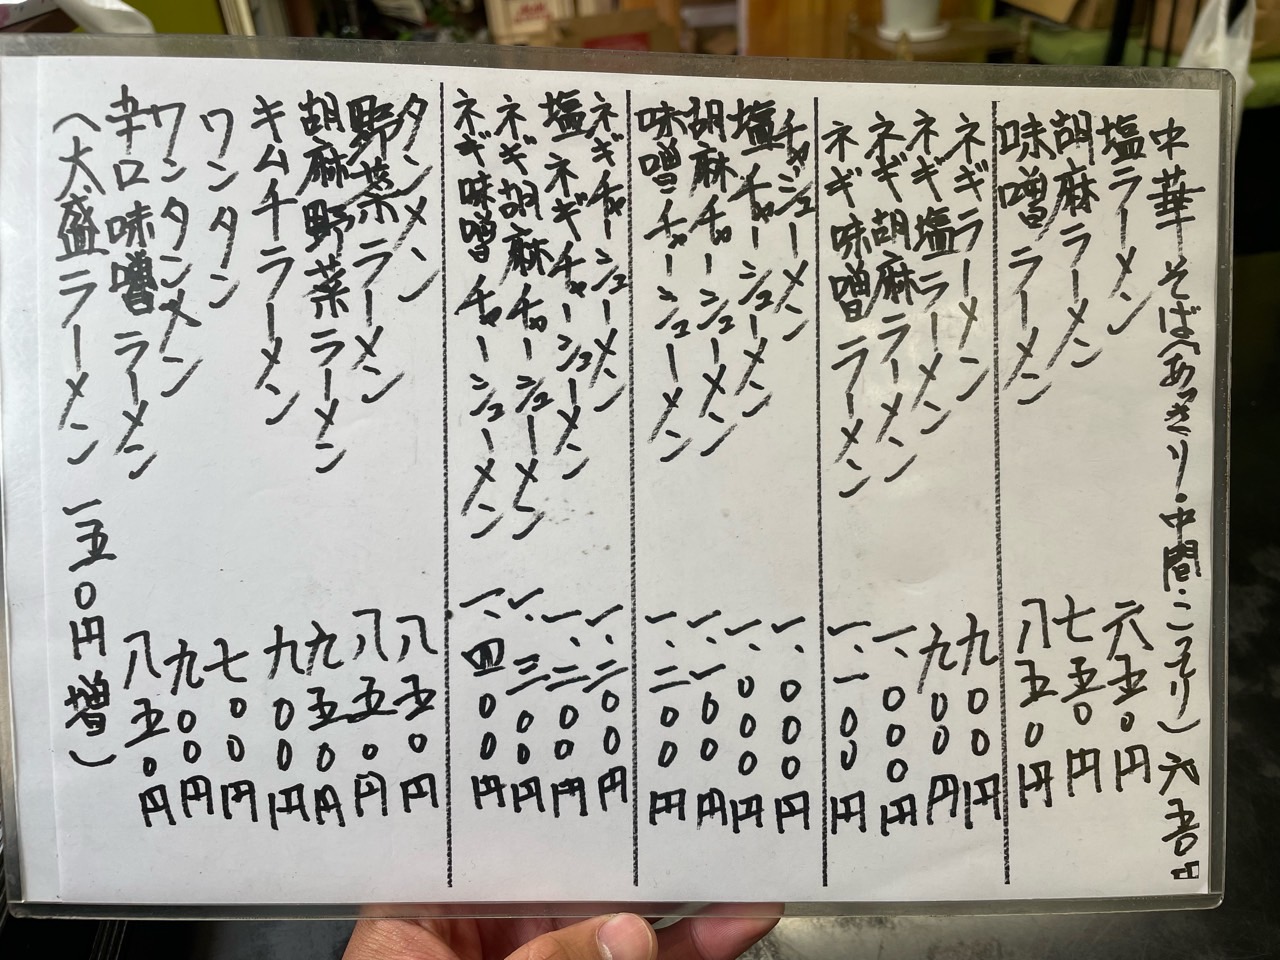 中華そば(あっさり・中間・こってり) 六五〇円
塩ラーメン 六五〇円
胡麻ラーメン 七五〇円
味噌ラーメン 八五〇円
ネギラーメン 九〇〇円
ネギ塩ラーメン 九〇〇円
ネギ胡麻ラーメン 一、〇〇〇円
ネギ味噌ラーメン 一、一〇〇円
チャーシューメン 一、〇〇〇円
塩チャーシューメン 一、〇〇〇円
胡麻チャーシューメン 一、一〇〇円
味噌チャーシューメン 一、二〇〇円
ネギチャーシューメン 一、二〇〇円
塩ネギチャーシューメン 一、二〇〇円
ネギ胡麻チャーシューメン 一、三〇〇円
ネギ味噌チャーシューメン 一、四〇〇円
タンメン 八五〇円
野菜ラーメン 八五〇円
胡麻野菜ラーメン 九五〇円
キムチラーメン 九〇〇円
ワンタン 七〇〇円
ワンタンメン 九〇〇円
辛口味噌ラーメン 八五〇円
(大盛ラーメン 一五〇円増)